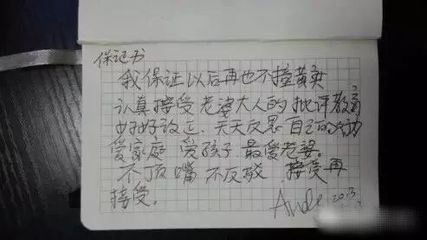 保证书
我保证以后再也不撞黄灯
认真接受老婆大人的批评教育
好好改正、天天反思自己的
爱家庭 爱孩子 最爱老婆。
不顶嘴 不反驳 接受再
接受。
Ande 2013